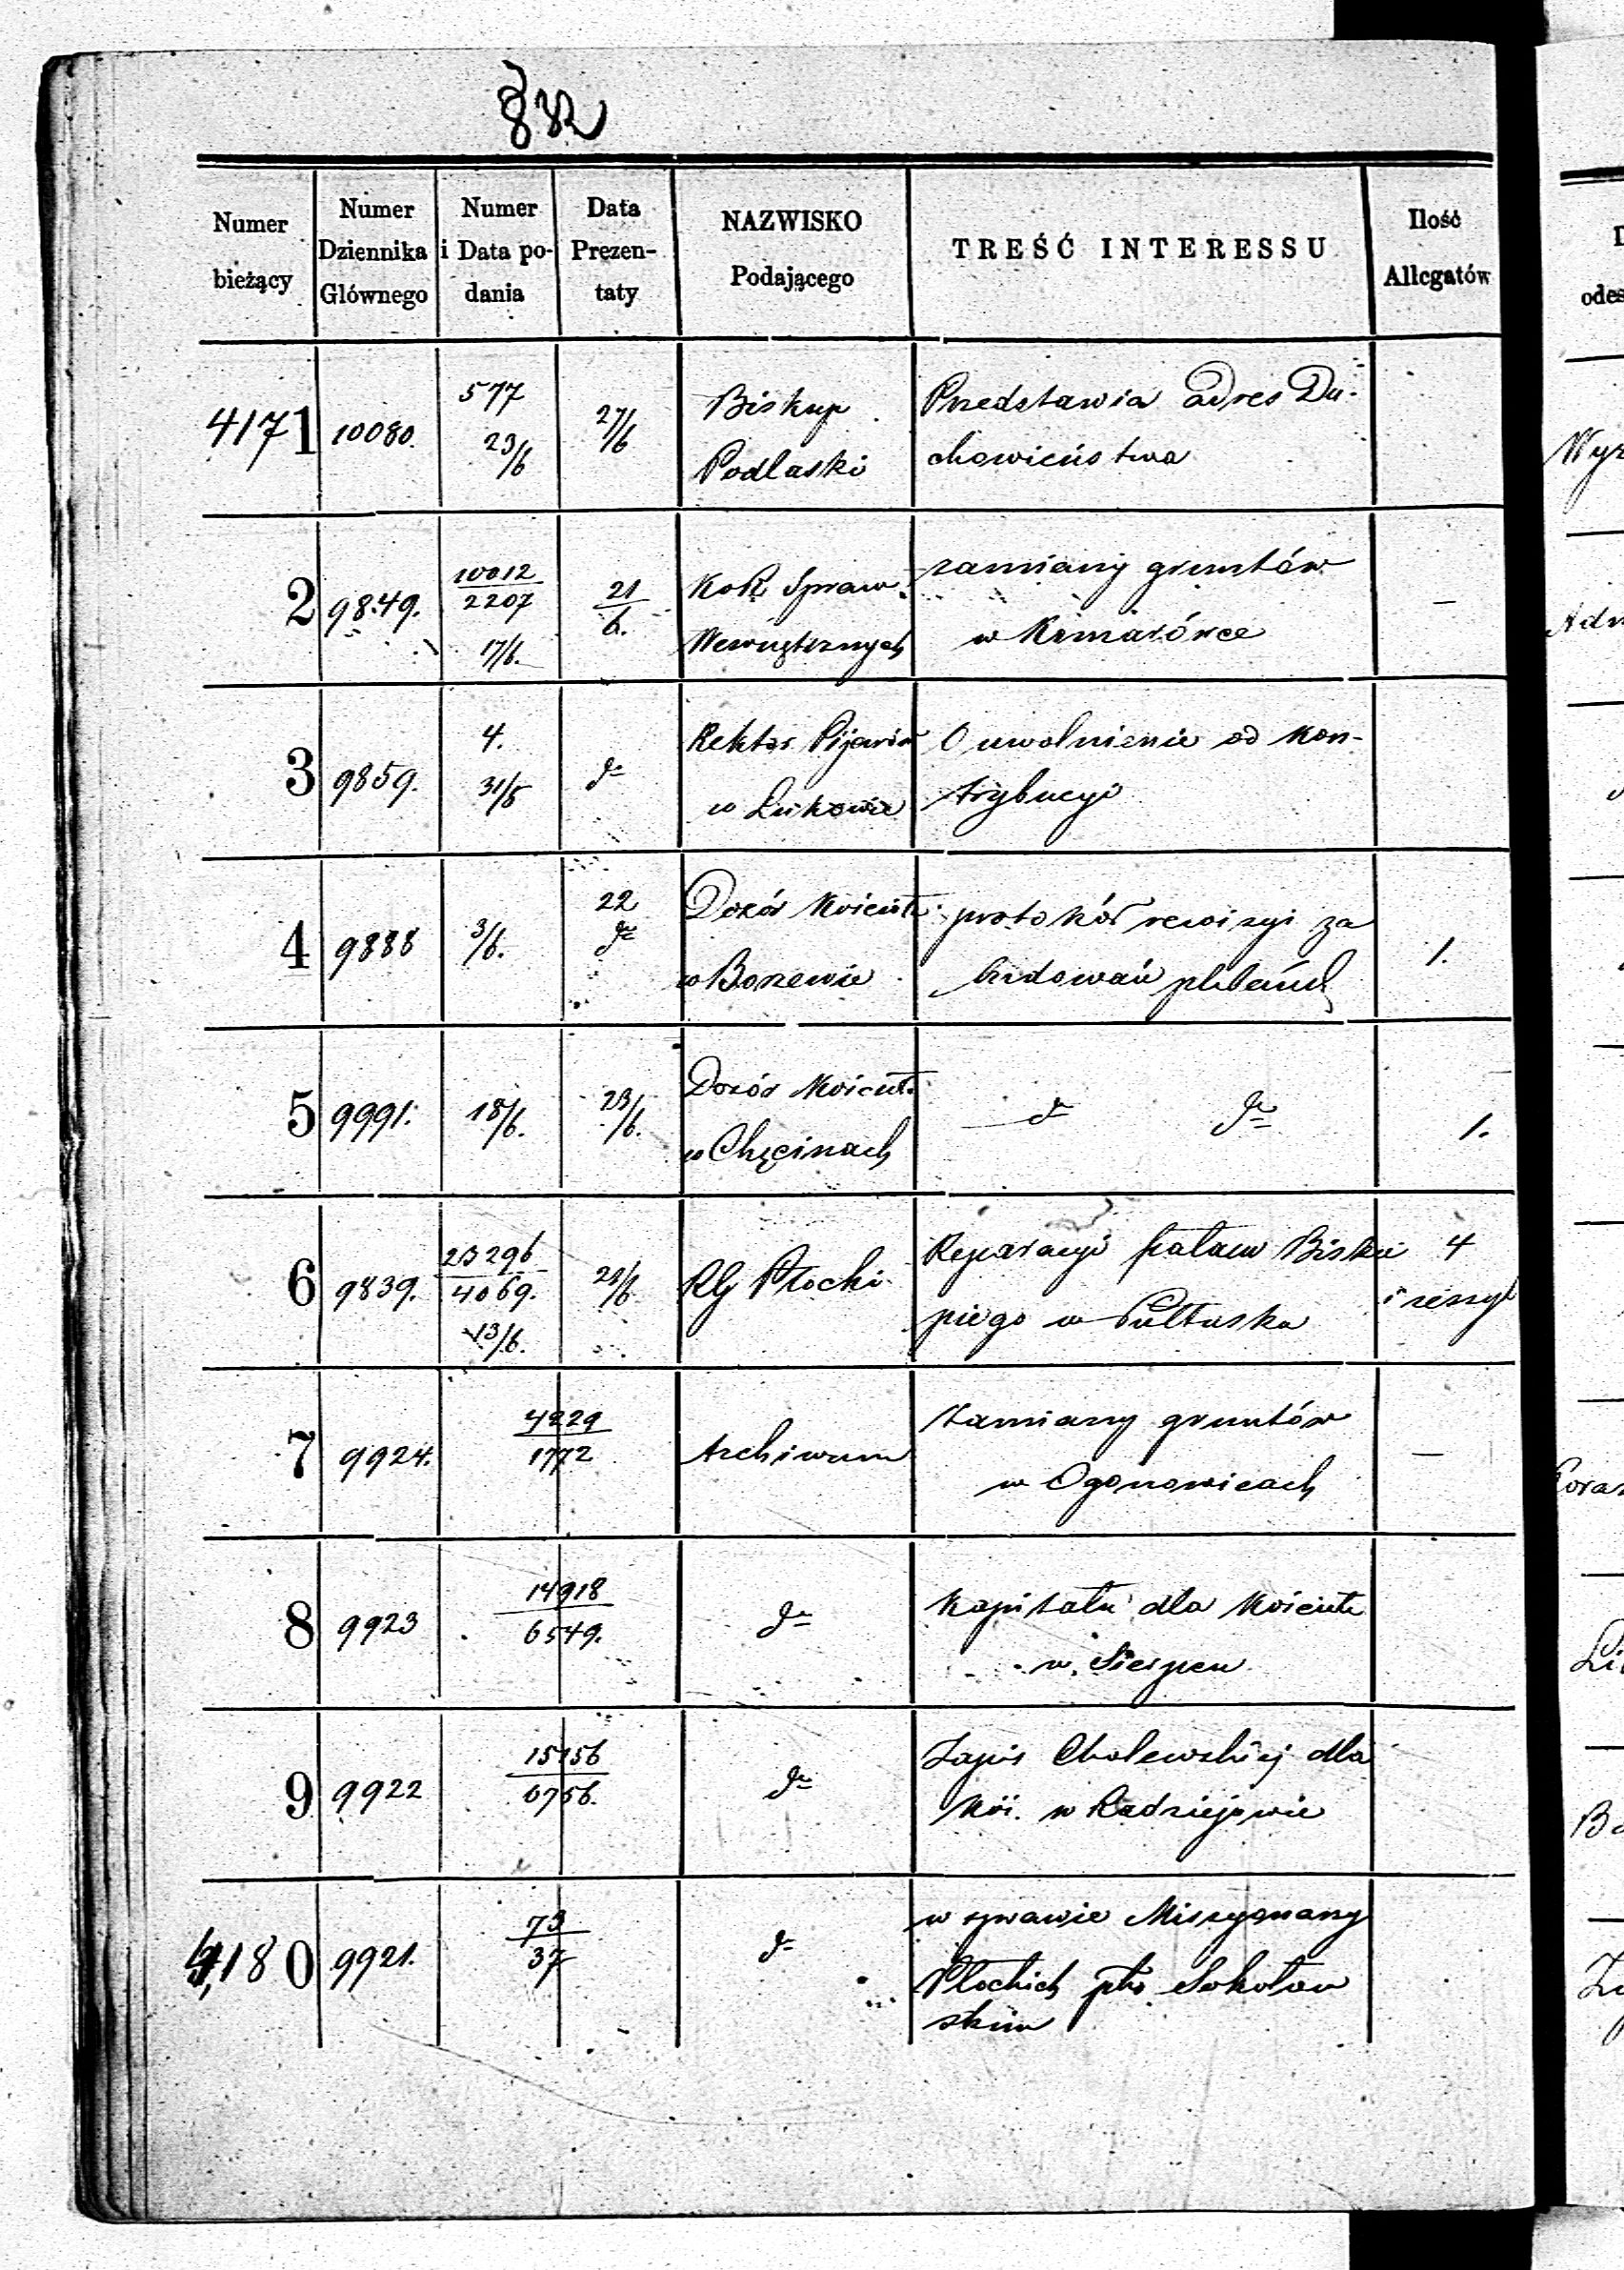 832
Numer bieżący | Numer Dziennika Głównego | Numer i Data podania | Data Prezentaty | NAZWISKO Podającego | TREŚĆ INTERESSU | Ilość Allegatów
4171 | 10080. | 577 23/6 | 27/6 | Biskup Podlaski | Przedstawia adres Duchowieństwa
2 | 9849. | 10012/2207 17/6. | 21/6. | Kom Spraw Wewnętrznych | zamiany gruntów w Komarówce | —
3 | 9859. | 4. 31/5 | do | Rektor Pijarów w Łukowie | O uwolnienie od kontrybucyi
4 | 9888 | 3/6. | 22 do | Dozór Kościeln. w Borzewie | protokół rewizyi zabudowań plebańsk | 1.
5 | 9991. | 18/6. | 23/6. | Dozór Kościeln. w Chęcinach | do do | 1.
6 | 9839. | 23296/4069. 13/6. | 21/6 | RG Płocki | Reparacyi pałacu Biskupiego w Pułtusku | 4 i zeszyt
7 | 9924. | 4229/1772 | Archiwum | Zamiany gruntów w Ogonowicach | —
8 | 9923 | 14918/6549. | do | Kapitału dla Kościoła w Sierpcu
9 | 9922 | 15156/6756. | do | Zapis Cholewskiej dla Koś. w Radziejowie
4180 | 9921. | 73/37 | do | w sprawie Missyonarzy Płockich pko Sokołowskim